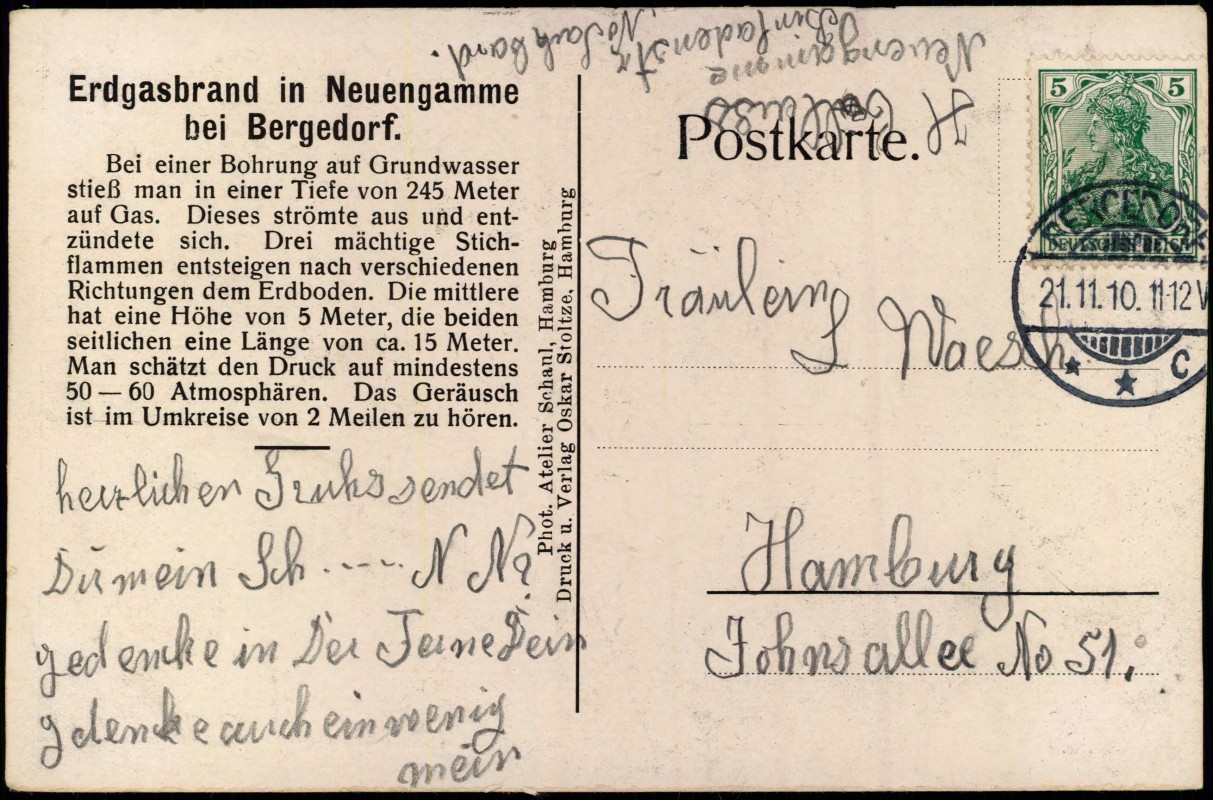 Erdgasbrand in Neuengamme
bei Bergedorf.
Bei einer Bohrung auf Grundwasser
stieß man in einer Tiefe von 245 Meter
auf Gas. Dieses strömte aus und ent-
zündete sich. Drei mächtige Stich-
flammen entsteigen nach verschiedenen
Richtungen dem Erdboden. Die mittlere
hat eine Höhe von 5 Meter, die beiden
seitlichen eine Länge von ca. 15 Meter.
Man schätzt den Druck auf mindestens
50 — 60 Atmosphären. Das Geräusch
ist im Umkreise von 2 Meilen zu hören.
herzlichen Gruhs sendet
Dir mein Sch ..... N N?
gedencke in Der Ferne Dein
gdencke auch ein wenig
mein
Phot. Atelier Schaul, Hamburg
Druck u. Verlag Oskar Stoltze, Hamburg
H
Neuengamme
Postkarte.
5 5
DEUTSCHES REICH
BERGEDORF
21.11.10. 11-12 V
C
Fräulein
S Waesch
Hamburg
Johnsallee No 51.